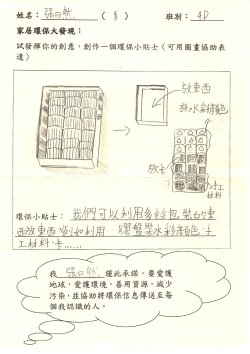 姓名：張日然 （8） 班別：4D
家居環保大發現：
試發揮你的創意，創作一個環保小貼士（可用圖畫協助表
達）
放東西
放水彩顏色
放卡
手工
材料
環保小貼士：我們可以利用多餘包裝的東
西放東西，例如利用膠盤裝水彩顏色、手
工材料、卡……
我 張日然 謹此承諾，要愛護
地球，愛護環境，善用資源，減少
污染，並協助將環保信息傳送至每
個我認識的人。